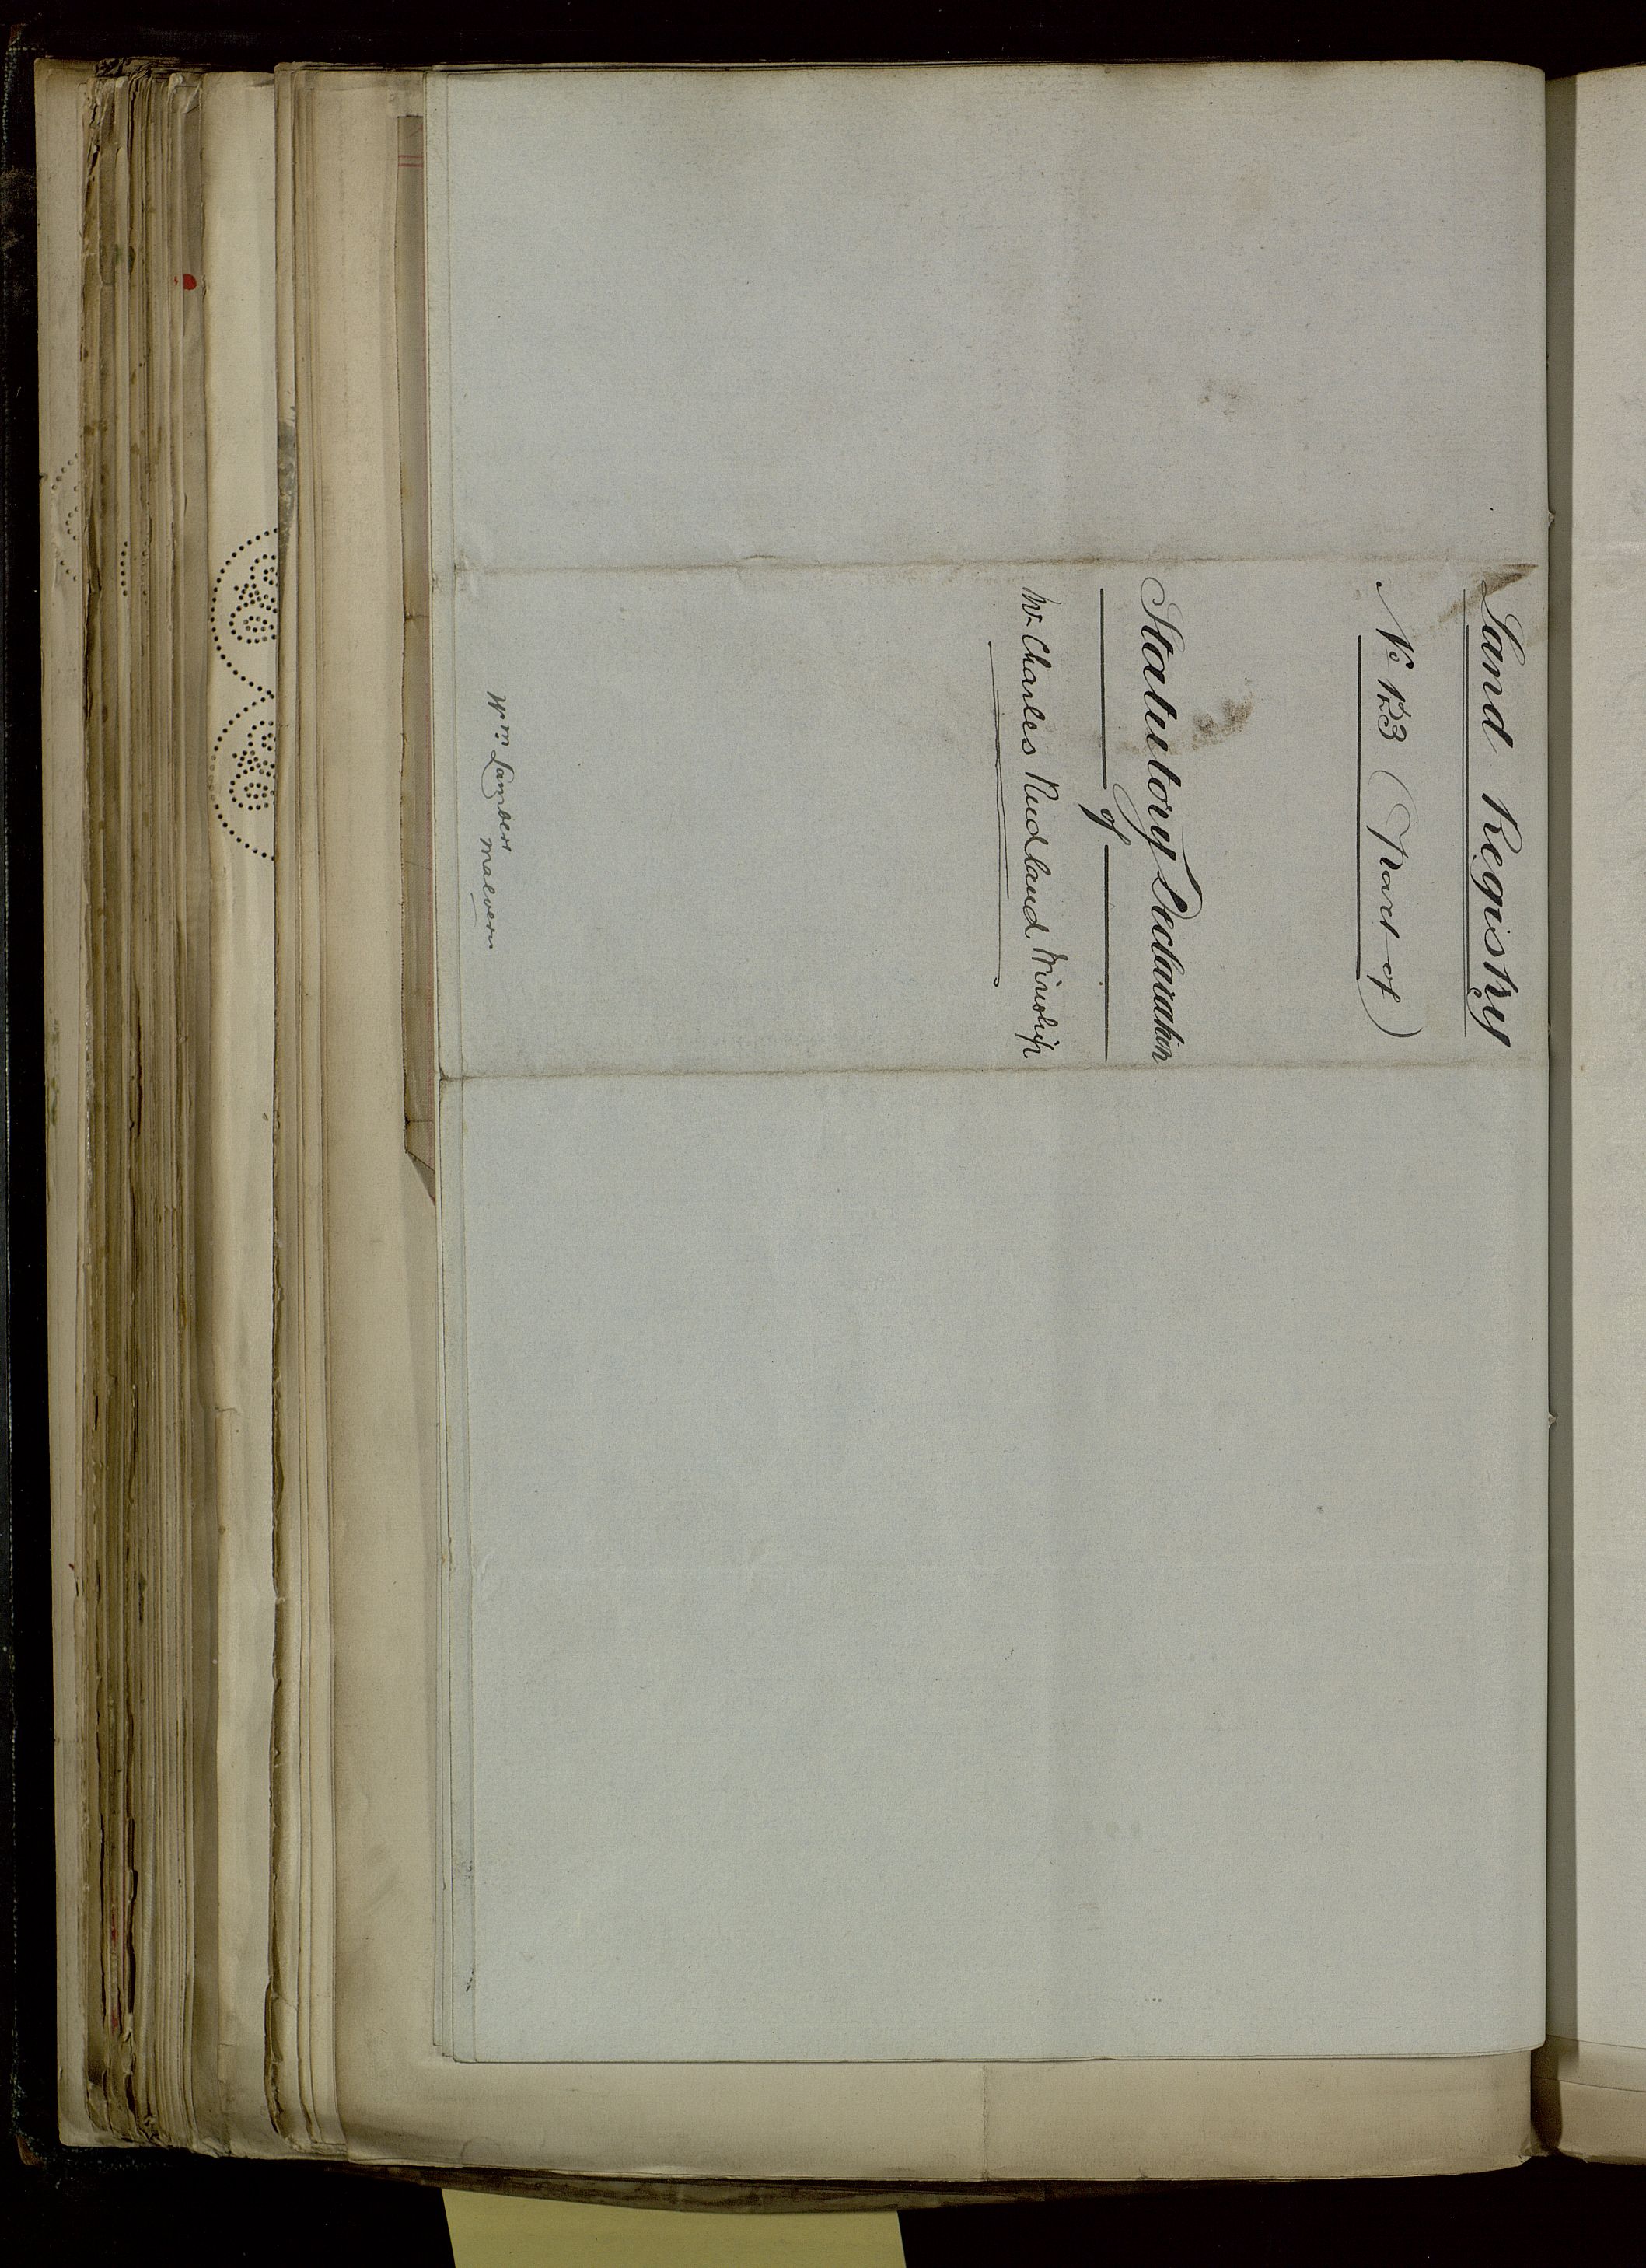 Land Registry
No 123 (Part of)
Statutory Declaration
of
Mr Charles Rudland Winslip
Wm Lambert
Malvern